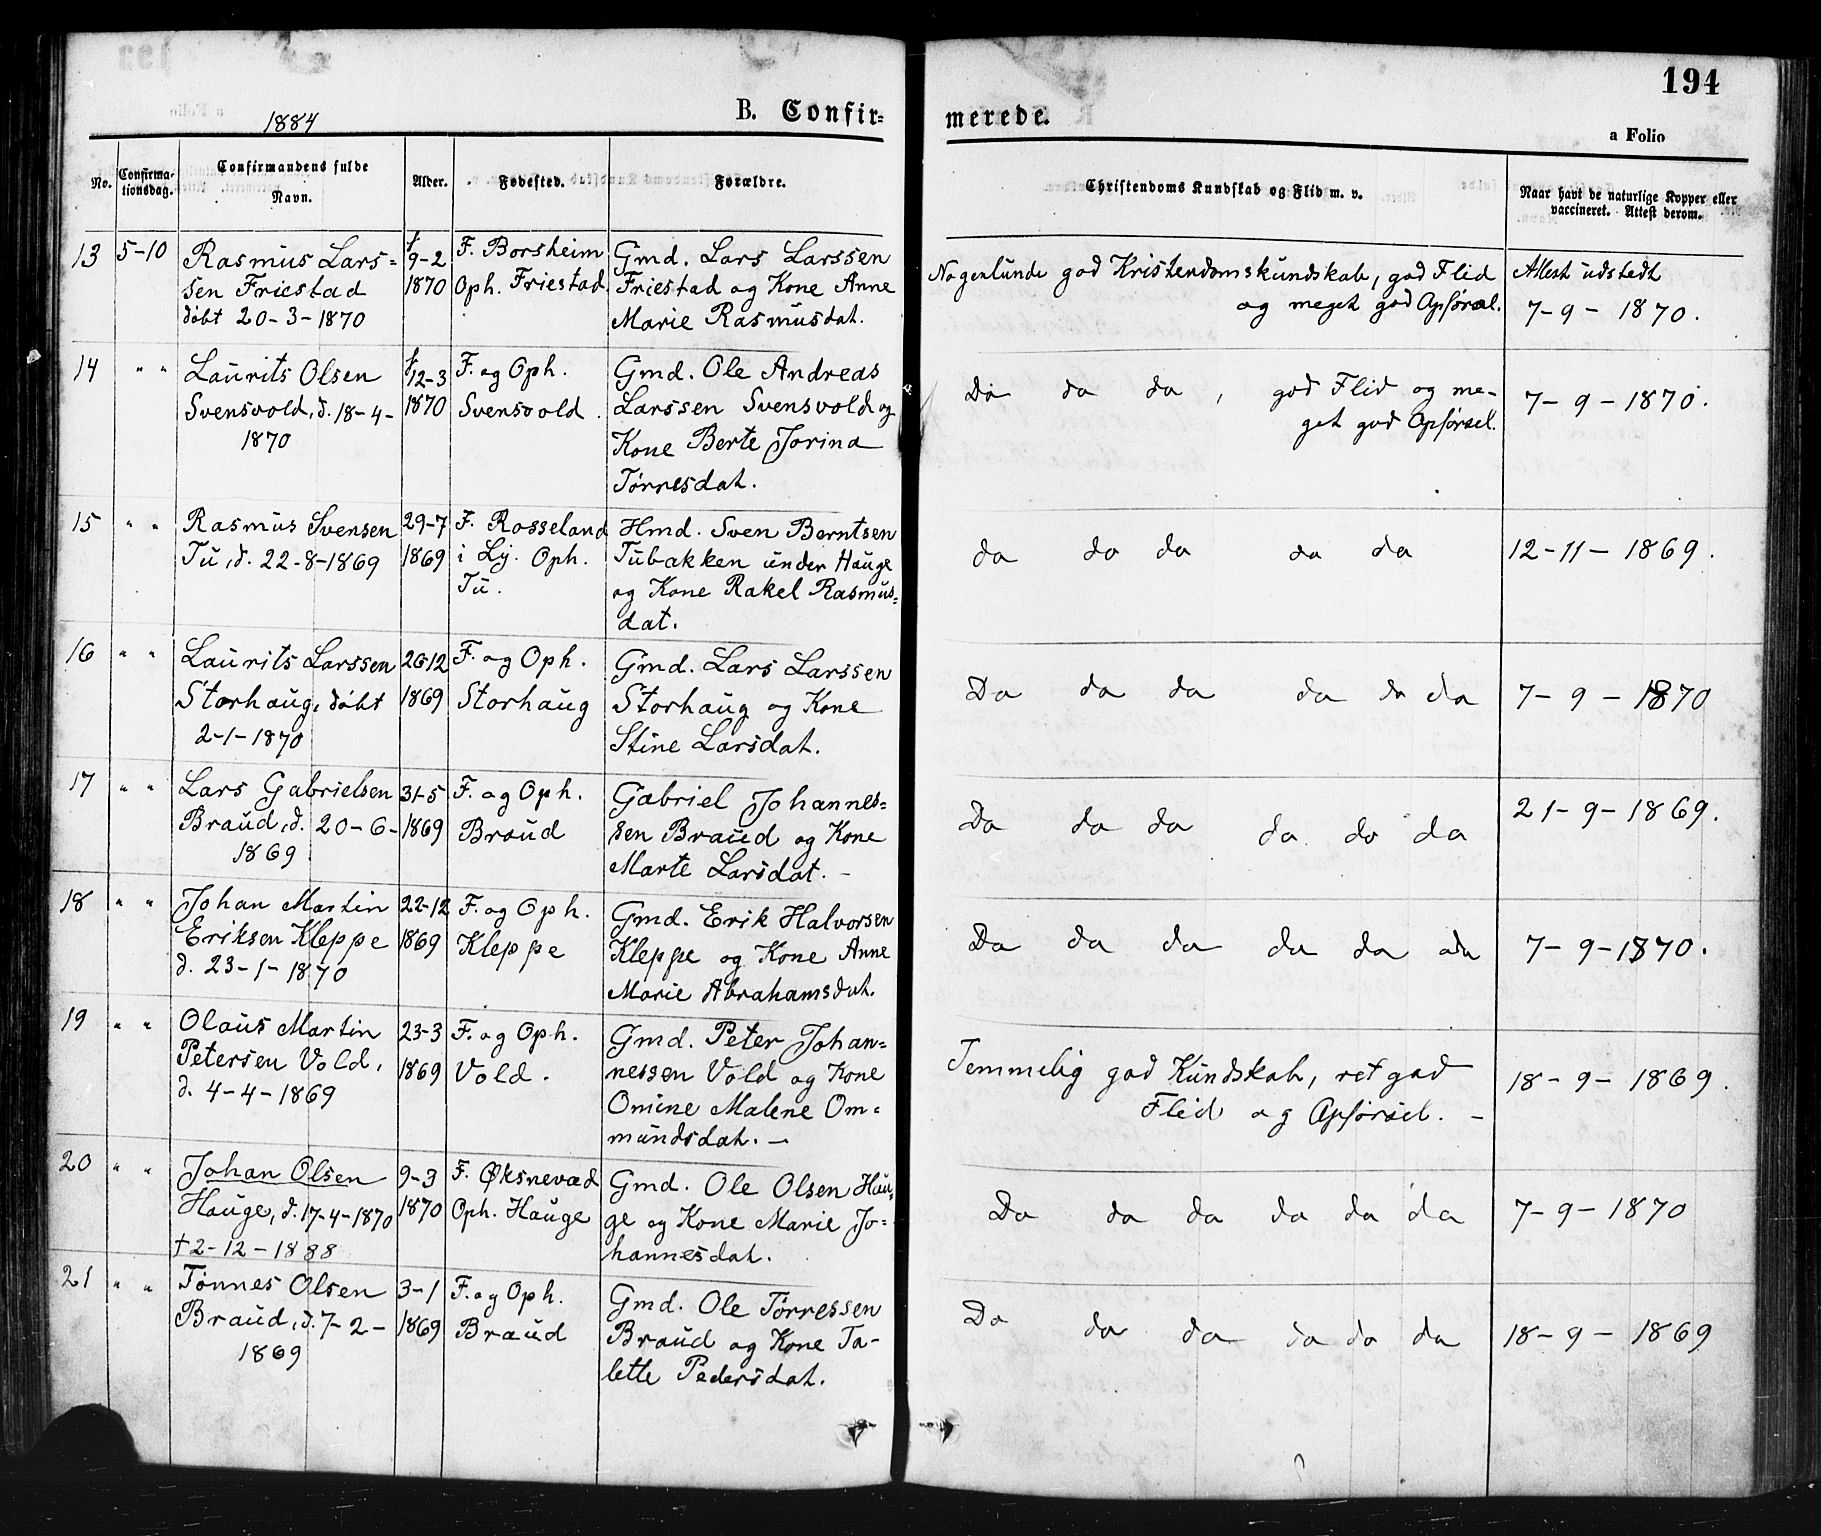 194
1884
B. Confir-
merede.
a Folio
No.
Confirma-
tionsdag.
Confirmandens fulde
Navn.
Alder.
Fødested.
Forældre.
Christendoms Kundskab og Flid m. v.
Naar havt de naturlige Kopper eller
vaccineret. Attest derom.
13
5-10
Rasmus Lars=
sen Friestad
døbt 20-3-1870
f
9-2
1870
F. Borsheim
Oph. Friestad
Gmd. Lars Larssen
Friestad og Kone Anne
Marie Rasmusdat.
Nogenlunde god Kristendomskundskab, god Flid
og meget god Opførsel.
Attest udstedt
7-9-1870.
14
" "
Laurits Olsen
Svensvold, d. 18-4-
1870
f
12-3
1870
F. og Oph.
Svensvold.
Gmd. Ole Andreas
Larssen Svensvold og
Kone Berte Jorina
Tørresdat.
Do do do, god Flid og me-
get god Opførsel.
7-9-1870.
15
" "
Rasmus Svensen
Tu, d. 22-8-1869
29-7
1869
F. Rosseland
i Ly. Oph.
Tu.
Hmd. Sven Berntsen
Tubakken under Hauge
og Kone Rakel Rasmus=
dat.
do do do do do
12-11-1869.
16
" "
Laurits Larssen
Storhaug, døbt
2-1-1870
26-12
1869
F. og Oph.
Storhaug
Gmd. Lars Larssen
Storhaug og Kone
Stine Larsdat.
Do do do do do do
7-9-1870
17
" "
Lars Gabrielsen
Braud, d. 20-6-
1869
31-5
1869
F. og Oph.
Braud
Gabriel Johannes-
sen Braud og Kone
Marte Larsdat. -
Do do do do do do
21-9-1869.
18
" "
Johan Martin
Eriksen Kleppe
d. 23-1-1870
22-12
1869
F. og Oph.
Kleppe
Gmd. Erik Halvorsen
Kleppe og Kone Anne
Marie Abrahamsdat.
Do do do do do do
7-9-1870.
19
" "
Olaus Martin
Petersen Vold,
d. 4-4-1869
23-3
1869
F. og Oph.
Vold.
Gmd. Peter Johan=
nessen Vold og Kone
Omine Malene Om=
mundsdat. -
Temmelig god Kundskab, ret god
Flid og Opførsel. -
18-9-1869.
20
" "
Johan Olsen
Hauge, d. 17-4-1870
† 2-12-1888
9-3
1870
F. Øksnevad
Oph. Hauge
Gmd. Ole Olsen Hau-
ge og Kone Marie Jo=
hannesdat.
Do do do do do do
7-9-1870
21
" "
Tønnes Olsen
Braud, d. 7-2-
1869
3-1
1869
F. og Oph.
Braud
Gmd. Ole Tørressen
Braud og Kone Ta-
lette Pedersdat.
Do do do do do do
18-9-1869